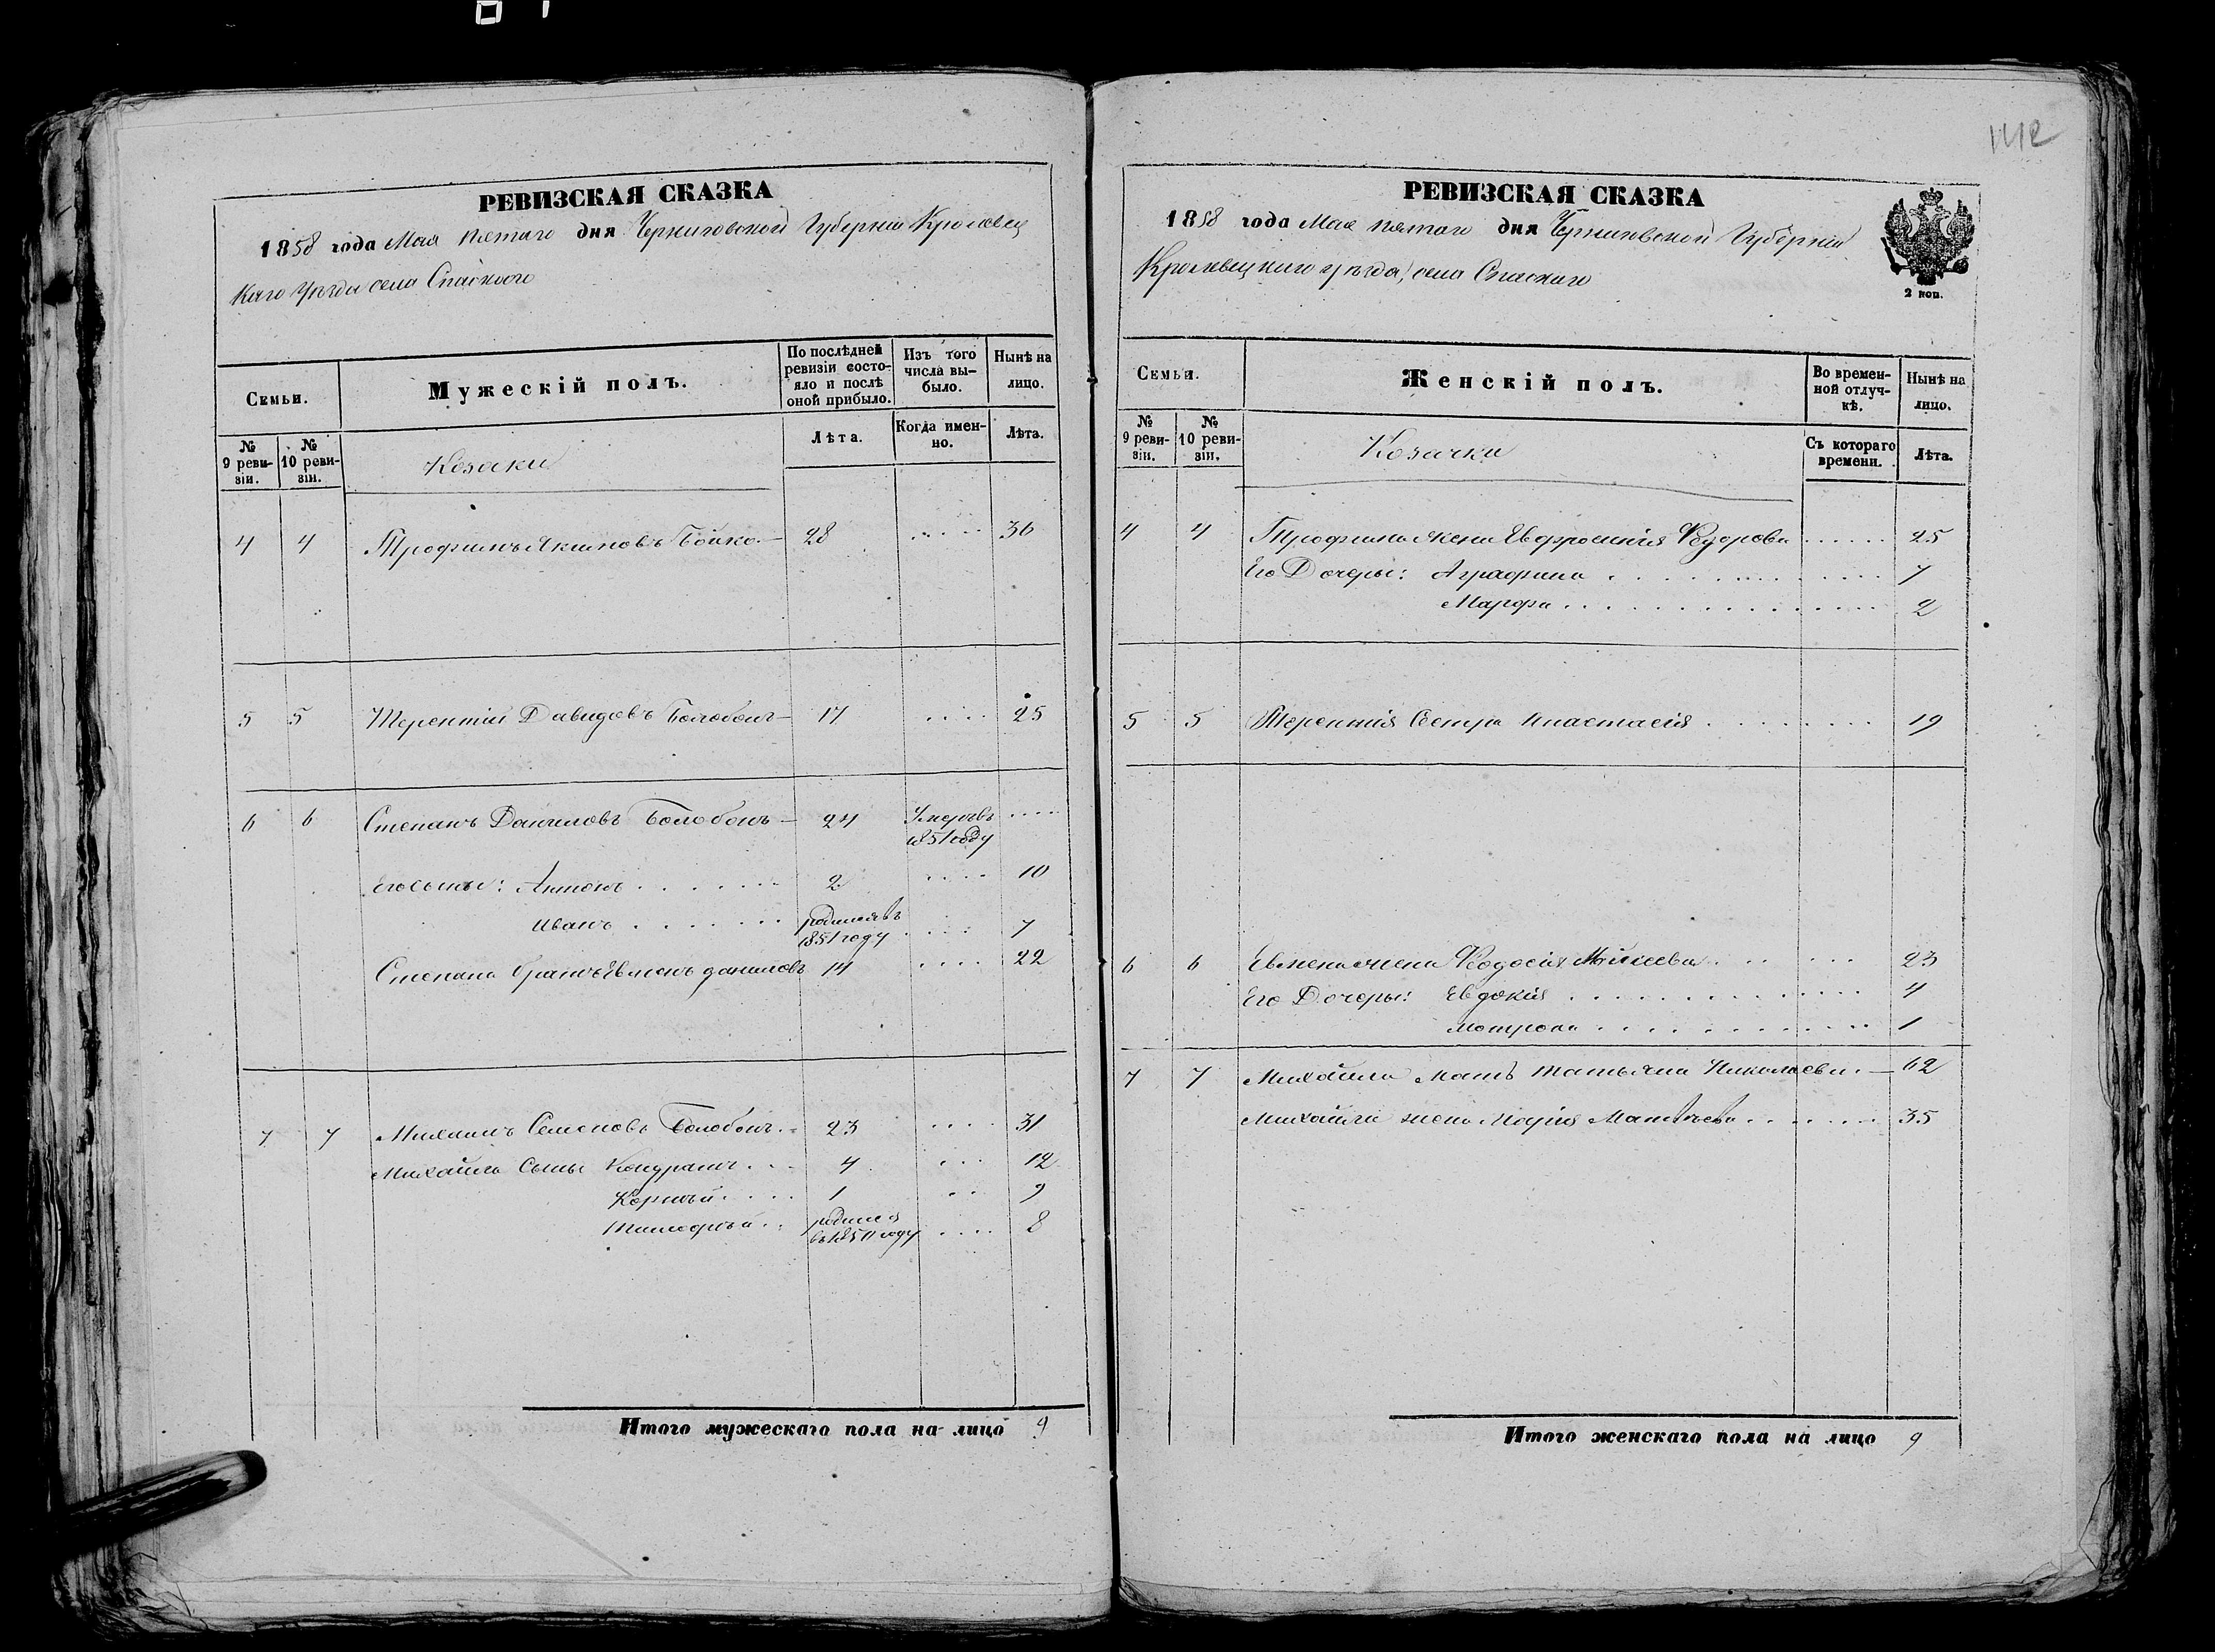 1412
РЕВИЗСКАЯ СКАЗКА
1858 года Мая пятаго дня Черниговской Губерніи Кролевец
каго уѣзда села Спаского
Семьи.
Мужескій полъ.
По послѣдней ревизіи состояло и послѣ оной прибыло.
Изъ того числа выбыло.
Нынѣ на лицо.
№ 9 ревизіи.
№ 10 ревизіи.
Козаки
Лѣта.
Когда именно.
Лѣта.
4 4 Трофимъ Якимовъ Бойко 28 36
5 5 Терентій Давидовъ Болобонъ 17 25
6 6 Степанъ Даниловъ Болобонъ 24 Умеръ въ 1851 году
Его сыны: Антонъ 2 10
Иванъ родился въ 1851 году 7
Степана братъ Евменъ Даниловъ 14 22
7 7 Михаилъ Семеновъ Болобонъ 23 31
Михайла сыны Кондратъ 4 12
Корнѣй 1 9
Тимофѣй родился въ 1850 году 8
Итого мужескаго пола на лицо 9
РЕВИЗСКАЯ СКАЗКА
1858 года Мая пятаго дня Черниговской Губерніи
Кролевецкаго уѣзда, села Спаскаго
2 коп.
Семьи.
Женскій полъ.
Во временной отлучкѣ.
Нынѣ на лицо.
№ 9 ревизіи.
№ 10 ревизіи.
Козачки
Съ котораго времени.
Лѣта.
4 4 Трофима жена Евфросинія Федорова 25
Его Дочеры: Аграфина 7
Марфа 2
5 5 Терентія Сестра Анастасія 19
6 6 Евмена жена Феодосія Моисеева 23
Его Дочеры: Евдокія 4
Мотрона 1
7 7 Михайла мать Татьяна Николаева 62
Михайла жена Марія Матвѣева 35
Итого женскаго пола на лицо 9